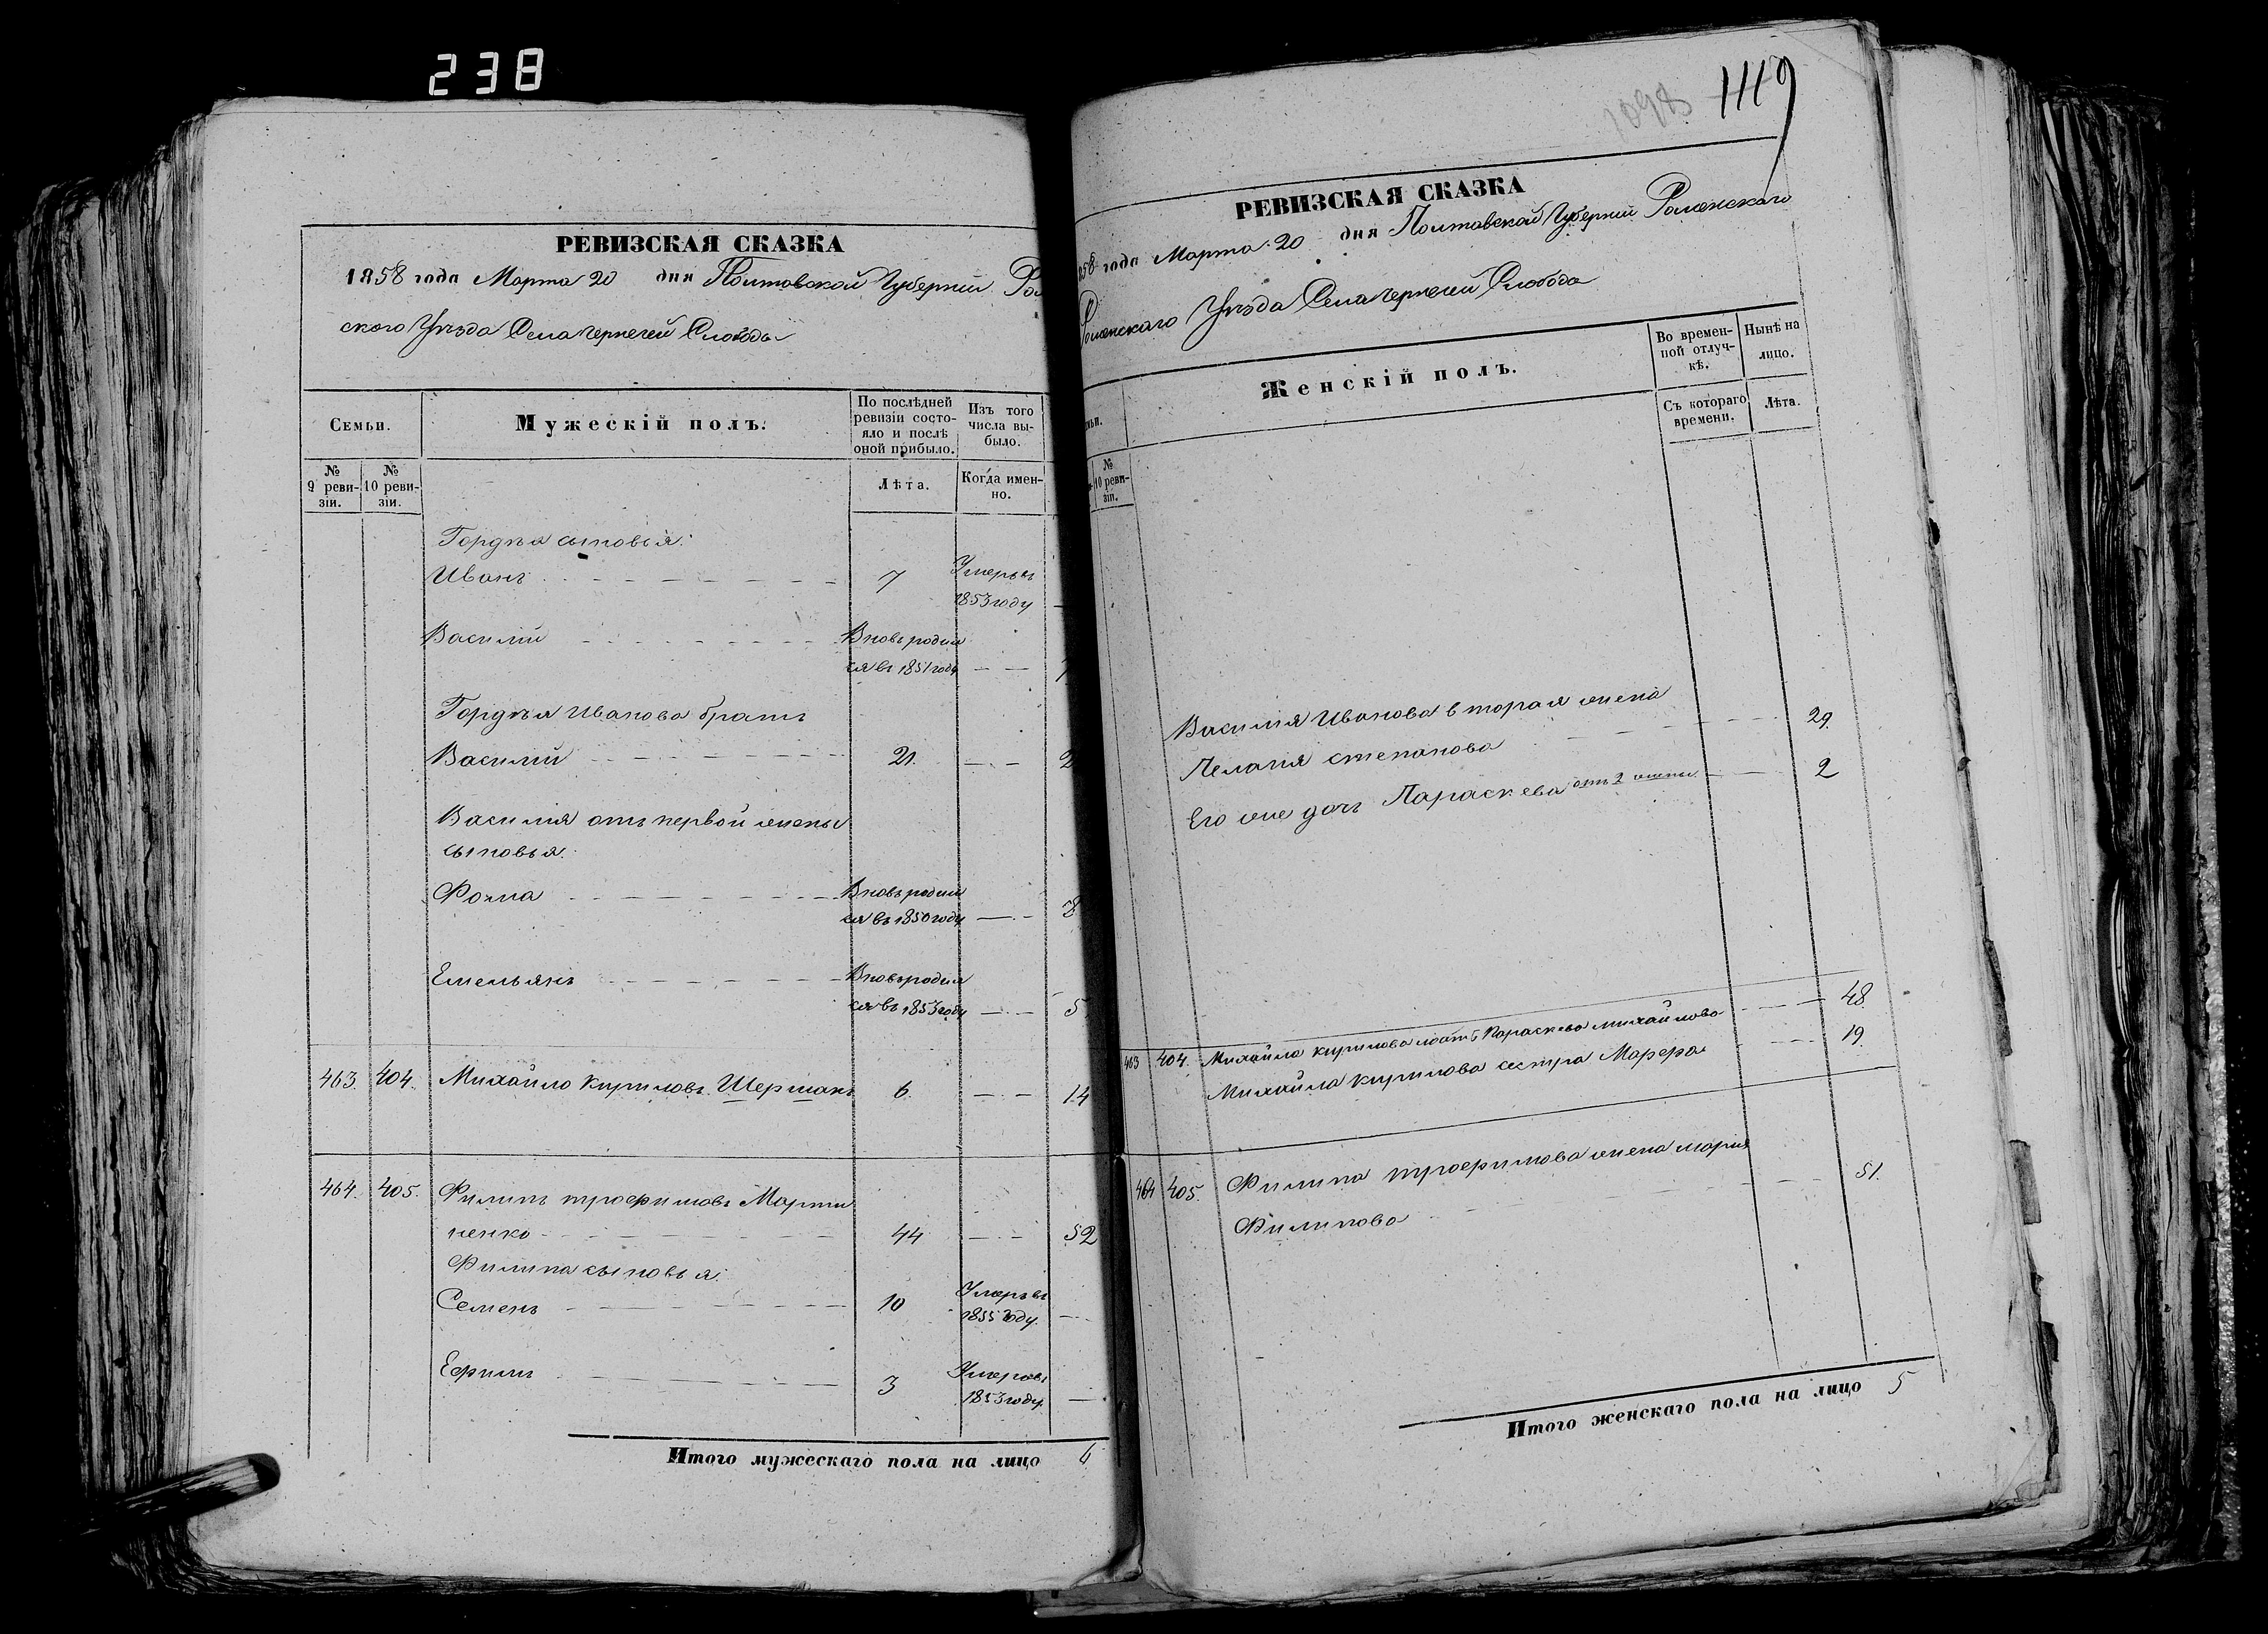 238
РЕВИЗСКАЯ СКАЗКА
1858 года Марта 20 дня Полтавской Губерніи Ром
скаго Уѣзда Села Чернечей Слободы
Семьи.
Мужескій полъ.
По послѣдней ревизіи состо-
яло и послѣ
оной прибыло.
Изъ того
числа вы-
было.
№
9 реви-
зіи.
№
10 реви-
зіи.
Лѣта.
Когда имен-
но.
Гордѣя сыновья:
Иванъ 7 Умеръ въ
1853 году
Василій Вновь родил
ся въ 1851 году
Гордѣя Иванова братъ
Василій 21.
Василія отъ первой жены
сыновья:
Фома Вновь родил
ся въ 1850 году 8
Емельянъ Вновь родил
ся въ 1853 году 5
463. 404. Михайло Кириловъ Шершакъ 6. 14
464. 405. Филипъ Трофимовъ Марти
ненко 44 52
Филипа сыновья:
Семенъ 10 Умеръ въ
1855 году.
Ефимъ 3 Умеръ въ
1853 году.
Итого мужескаго пола на лицо 6
1098 1119
РЕВИЗСКАЯ СКАЗКА
858 года Марта 20 дня Полтавской Губерніи Роменскаго
Роменскаго Уѣзда Села Чернечей Слободы
Женскій полъ.
Во времен-
ной отлуч-
кѣ.
Нынѣ на
лицо.
№
10 реви-
зіи.
Съ котораго
времени.
Лѣта.
Василія Иванова вторая жена
Пелагія Степанова 29.
Его же дочь Параскева отъ 2 жены 2
463 404. Михайла Кирилова мать Параскева Михайлова 48.
Михайла Кирилова сестра Марфа 19.
464 405. Филипа Трофимова жена Марія
Филипова 51.
Итого женскаго пола на лицо 5